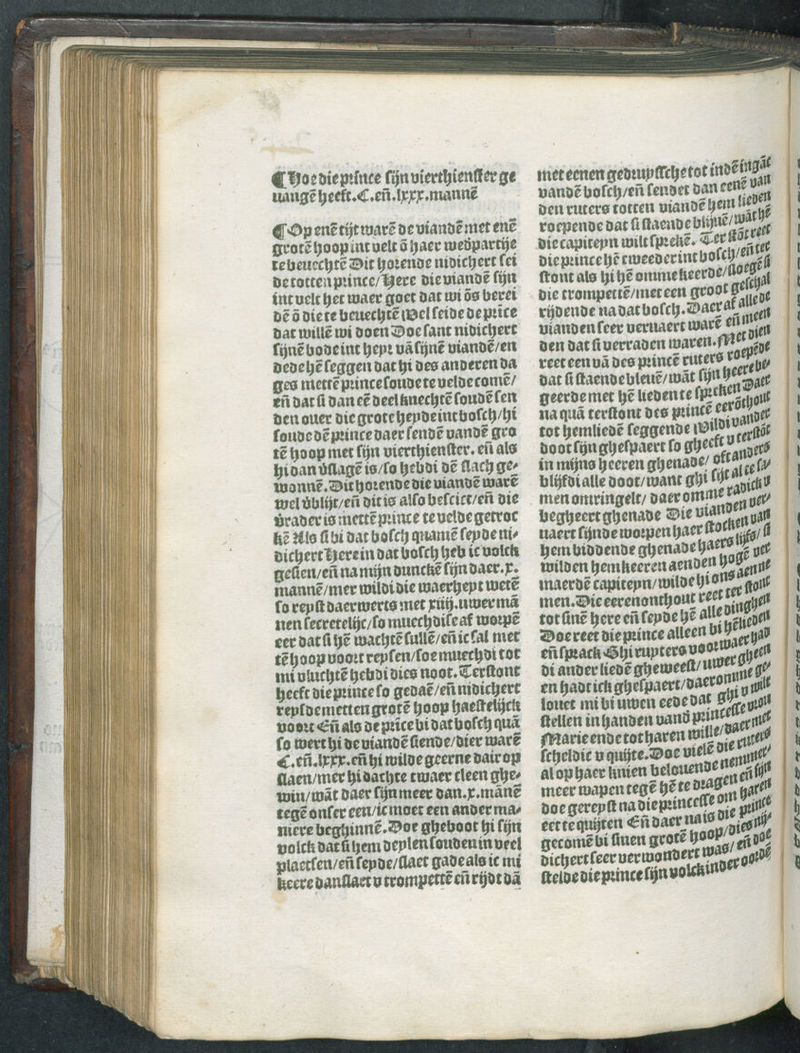 ¶ Hoe die prince sijn vierthienster ge
uangē heeft. C. eñ. lxxx. mannē
¶ Op enē tijt warē de viandē met enē
grotē hoop int velt ō haer wed̄partije
te beuechtē Dit horende nidichert sei
de totten prince/ Here die viandē sijn
int velt het waer goet dat wi ōs berei
dē ō die te beuechtē Wel seide de prīce
dat willē wi doen Doe sant nidichert
sijnē bode int heyr vā sijnē viandē/ en
dede hē seggen dat hi des anderen da
ges mettē prince soude te velde comē/
eñ dat si dan eē deel knechtē soudē sen
den ouer die grote heyde int bosch/ hi
soude dē prince daer sendē vandē gro
tē hoop met sijn vierthienster. eñ als
hi dan v̄slagē is/ so hebdi dē slach ge-
wonnē. Dit horende die viandē warē
wel v̄blijt/ eñ dit is also bescict/ eñ die
v̄rader is mettē prince te velde getroc
kē Als si bi dat bosch quamē seyde ni-
dichert Here in dat bosch heb ic volck
gesien/ eñ na mijn dunckē sijn daer. x.
mannē/ mer wildi die waerheyt wetē
so reyst daerwerts met xiiij. uwer mā
nen secretelijc/ so muechdise af worpē
eer dat si hē wachtē sullē/ eñ ic sal met
tē hoop voort reysen/ soe muechdi tot
mi vluchtē hebdi dies noot. Terstont
heeft die prince so gedaē/ eñ nidichert
reysde metten grotē hoop haestelijck
voort Eñ als de prīce bi dat bosch quā
so wert hi de viandē siende/ dier warē
C. eñ. lxxx. eñ hi wilde geerne dair op
slaen/ mer hi dachte twaer cleen ghe-
win/ wāt daer sijn meer dan. x. mānē
tegē onser een/ ic moet een ander ma-
niere beghinnē. Doe gheboot hi sijn
volck dat si hem deylen souden in veel
plaetsen/ eñ seyde/ slaet gade als ic mi
keere dan slaet v trompettē eñ rijdt dā
met eenen gedruysschetot indē ingāc
vandē bosch/ eñ sendet dan eenē van
den ruters totten viandē hem lieden
roepende dat si staende blijuē/ wāt hē
die capiteyn wilt sprekē. Ter stōt reet
die prince hē tweeder int bosch/ eñ ter
stont als hi hē omme keerde/ sloegē si
die trompettē/ met een groot geschal
rijdende na dat bosch. Daer af alle de
vianden seer veruaert warē eñ meen
den dat si verraden waren. Met dien
reet een vā des princē ruters roepēde
dat si staende bleuē/ wāt sijn heere be-
geerde met hē lieden te spreken Daer
na quā terstont des princē eerōthout
tot hemliedē seggende Wildi vander
doot sijn ghespaert so gheeft v terstāt
in mijns heeren ghenade/ oft anders
blijfdi alle doot/ want ghi sijt al te sa-
men omringelt/ daer omme radick v
begheert ghenade Die vianden ver-
uaert sijnde worpen haer stocken van
hem biddende ghenade haers lijfs/ si
wilden hem keeren aenden hogē ver
maerdē capiteyn/ wilde hi ons aenne
men. Die eerenonthout reet ter stont
tot sinē here eñ seyde hē alle dinghen
Doe reet die prince alleen bi hēlieden
eñ sprack Ghi ruyters voorwaer had
di ander liedē gheweest/ uwer gheen
en hadt ick ghespaert/ daeromme ge-
louet mi bi uwen eede dat ghi v wilt
stellen in handen vand̄ princesse vrou
Marie ende tot haren wille/ daer met
scheldic v quijte. Doe vielē die ruters
al op haer knien belouende nemmer-
meer wapen tegē hē te dragen eñ sijn
doe gereyst na die princesse om haren
eet te quijten Eñ daer na is die prince
gecomē bi sinen grotē hoop/ dies nij-
dichert seer verwondert was/ eñ doe
stelde die prince sijn volck inder oordē